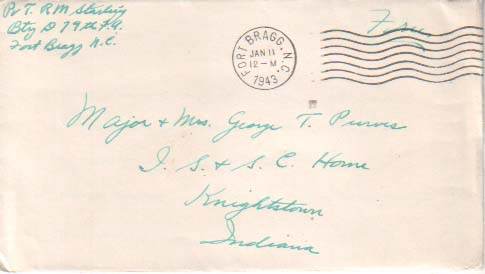 PvT. R M Sterling
Bty D 79th F.A.
Fort Bragg N.C.
Free
FORT BRAGG, N.C.
JAN 11
12-M
1943
Major + Mrs. George T. Purvis
I. S. + S. C. Home
Knightstown
Indiana